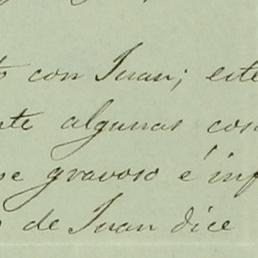 con Juan; este
algunas cos
se gravoso é inf
de Juan dice